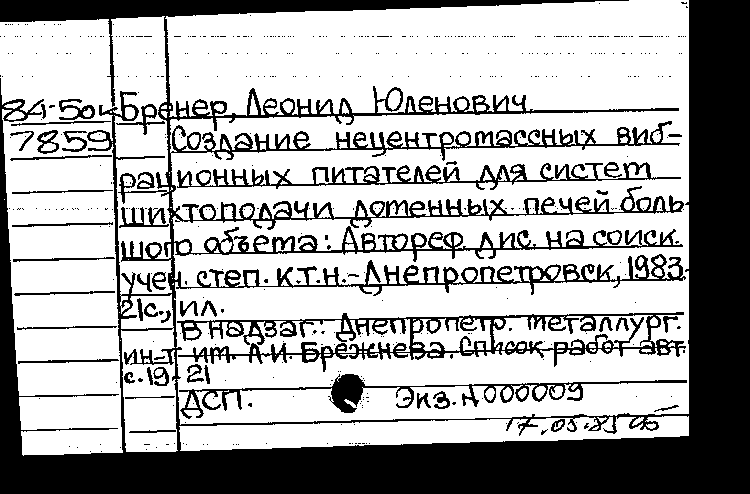 84-5ок Бренер, Леонид Юленович
7859 Создание нецентромассных виб-
рационных питателей для систем
шихтоподачи доменных печей боль-
шого объема: Автореф. дис. на соиск.
учен. степ. к.т.н.-Днепропетровск, 1983-
21с., ил.
В надзаг.: Днепропетр. металлург.
ин-т им. Л.И. Брежнева. Список работ авт.
с. 19-21
ДСП. Экз. №000009
17.05.85